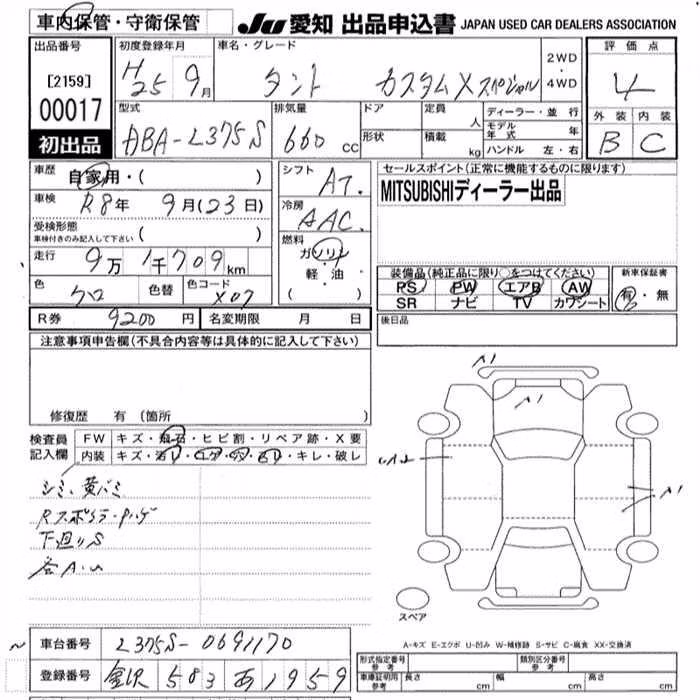 車内保管・守衛保管 JU 愛知 出品申込書 JAPAN USED CAR DEALERS ASSOCIATION
出品番号 初度登録年月 車名・グレード 評価点
[2159] H25 9月 タント カスタムXスペシャル 2WD・4WD 4
00017 型式 排気量 ドア 定員 人 ディーラー・並行 外装 内装
初出品 ABA-L375S 660cc 形状 積載 kg モデル年式 年 B C
ハンドル 左・右
車歴 自家用・( ) シフト AT セールスポイント(正常に機能するものに限ります)
車検 R8年 9月(23日) 冷房 AAC MITSUBISHIディーラー出品
受検形態 車検付きのみ記入して下さい ( )
走行 9万1千709km 燃料 ガソリン・軽油・( )
装備品(純正品に限り○をつけてください) 新車保証書
色 クロ 色替 色コード X07 PS PW エアB AW 有・無
SR ナビ TV カワシート
R券 9200円 名変期限 月 日 後日品
注意事項申告欄(不具合内容等は具体的に記入して下さい)
修復歴 有(箇所
検査員記入欄 FW キズ・飛石・ヒビ割・リペア跡・X要
内装 キズ・汚レ・コゲ・穴・剥レ・キレ・破レ
シミ、黄バミ
下廻りS
各A・U
A1
A1
A1
スペア
A-キズ E-エクボ U-凹み W-補修跡 S-サビ C-腐食 XX-交換済
車台番号 L375S-0691170
登録番号 金沢 583 あ1959
形式指定番号 参考 類別区分番号 参考
車庫証明用 参考 長さ cm 幅 cm 高さ cm